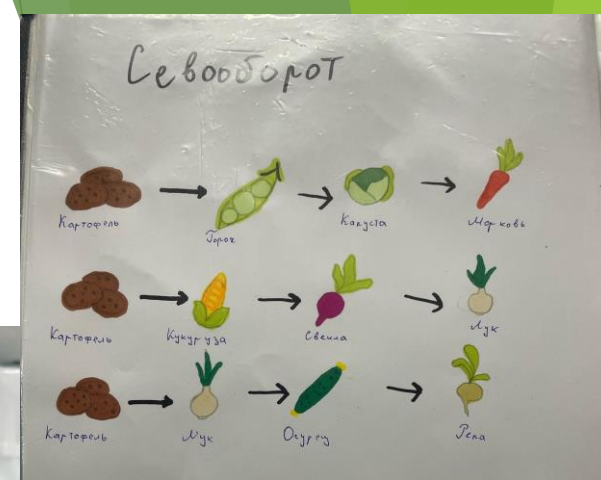 Севооборот
Картофель Горох Капуста Морковь
Картофель Кукуруза Свекла Лук
Картофель Лук Огурец Репа